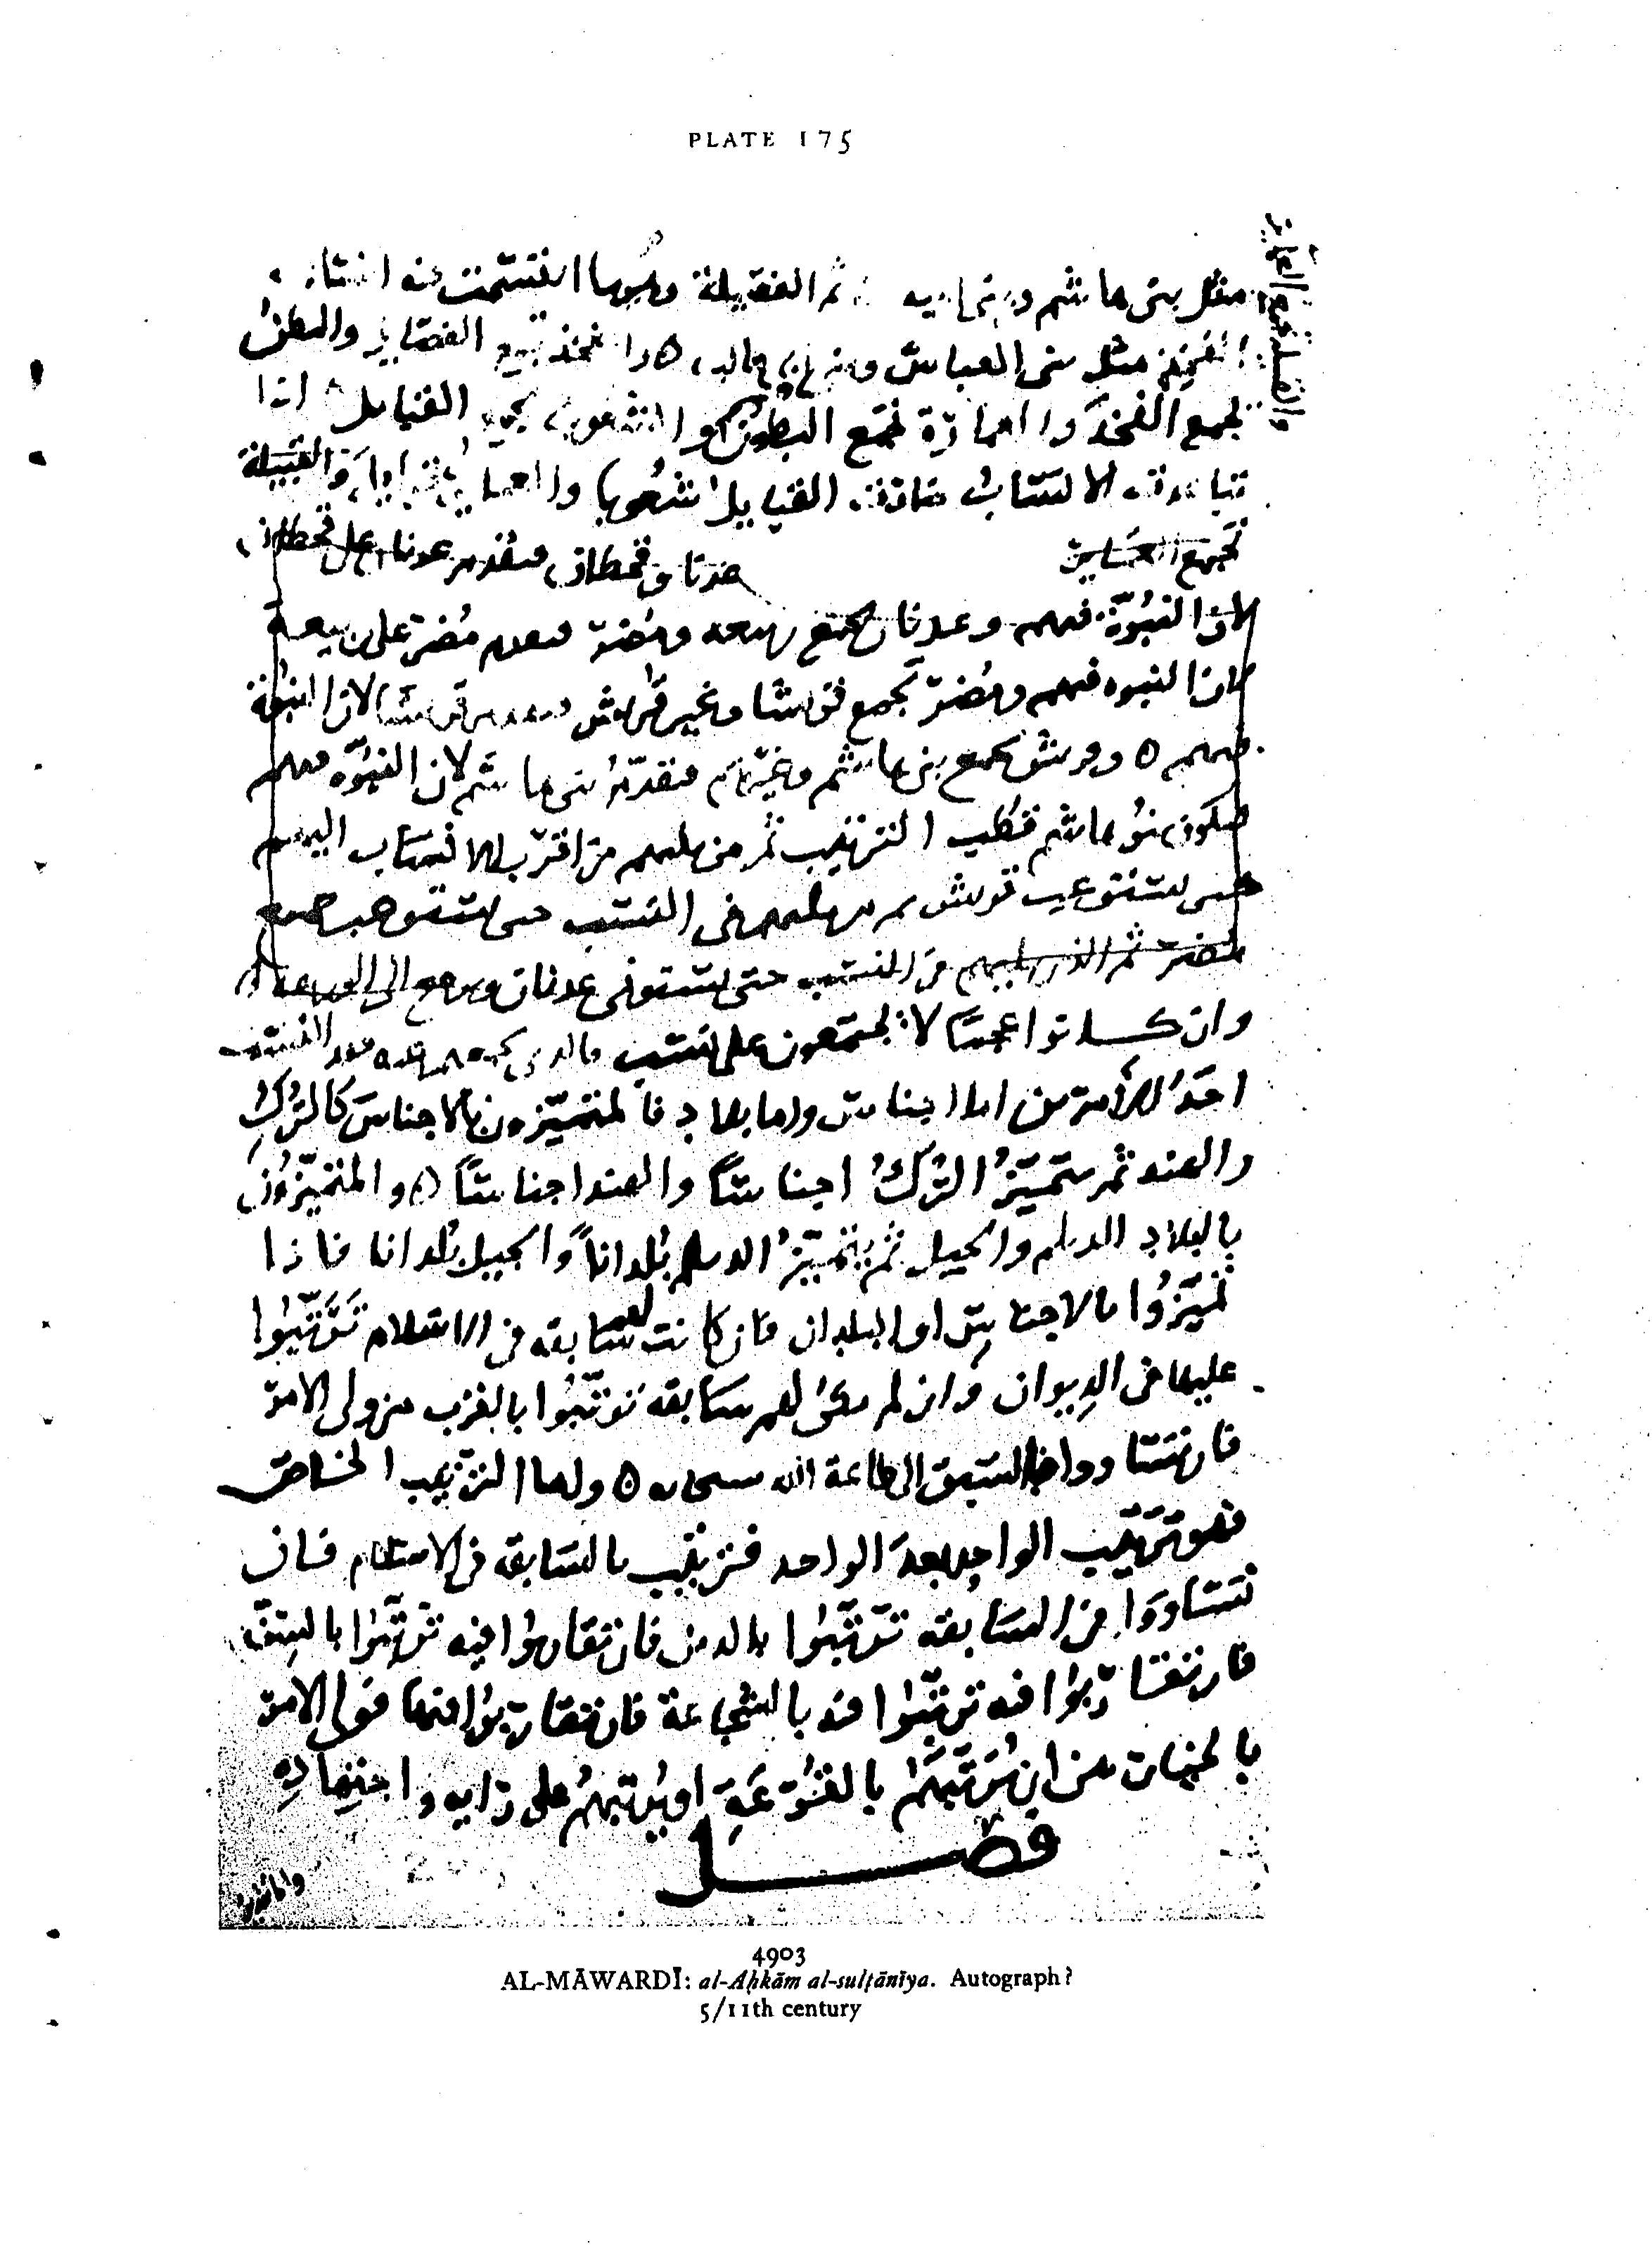 PLATE 175
مثل بني هاشم وبني امية ثم الفصيلة وهي ما انقسمت فيه انساب
الفخذ مثل بني العباس وبني ابي طالب ه فالفخذ تجمع الفصايل والبطن
تجمع الفخذ والعمارة تجمع البطون والشعوب تجمع القبايل اذا
تباعدت الانساب صارت القبايل شعوبا والعماير قبايلا والقبيلة
تجمع العماير عدنان وقحطان فتقدم عدنان على قحطان
لان النبوة فيهم وعدنان تجمع ربيعة ومضر فتقدم مضر على ربيعة
لان النبوة فيهم ومضر تجمع قريشا وغير قريش فتقدم قريشا لان النبوة
فيهم ه وقريش تجمع بني هاشم وغيرهم فتقدم بني هاشم لان النبوة فيهم
فيكون بنو هاشم قطب الترتيب ثم من يليهم من اقرب الانساب اليهم
حتى تستوعب قريش ثم من يليهم في النسب حتى يستوعب جميع
مضر ثم الذين يليهم في النسب حتى يستوفي عدنان
وان كانوا عجما لا يجتمعون على نسب فالذي يجمعهم عند فقد النسب
احد الامرين اما اجناس واما بلاد فالمتميزون بالاجناس كالترك
والهند ثم يتميز الترك اجناسا والهند اجناسا ه والمتميزون
بالبلاد الديلم والجيل ثم يتميز الديلم بلدانا والجيل بلدانا فاذا
تميزوا بالاجناس او البلدان فان كانت لهم سابقة في الاسلام ترتبوا
عليها في الديوان وان لم يكن لهم سابقة ترتبوا بالقرب من ولي الامر
فان تساووا فبالسبق الى طاعة الله سبحانه ه واما الترتيب الخاص
فهو ترتيب الواحد بعد الواحد فترتيب بالسابقة في الاسلام فان
تساووا في السابقة ترتبوا بالدين فان تقاربوا فيه ترتبوا بالسن
فان تقاربوا فيه ترتبوا فيه بالشجاعة فان تقاربوا فيها فولي الامر
بالخيار من ان يرتبهم بالقرعة او يرتبهم على رايه واجتهاده
فصل
4903
AL-MĀWARDĪ: al-Aḥkām al-sulṭānīya. Autograph?
5/11th century